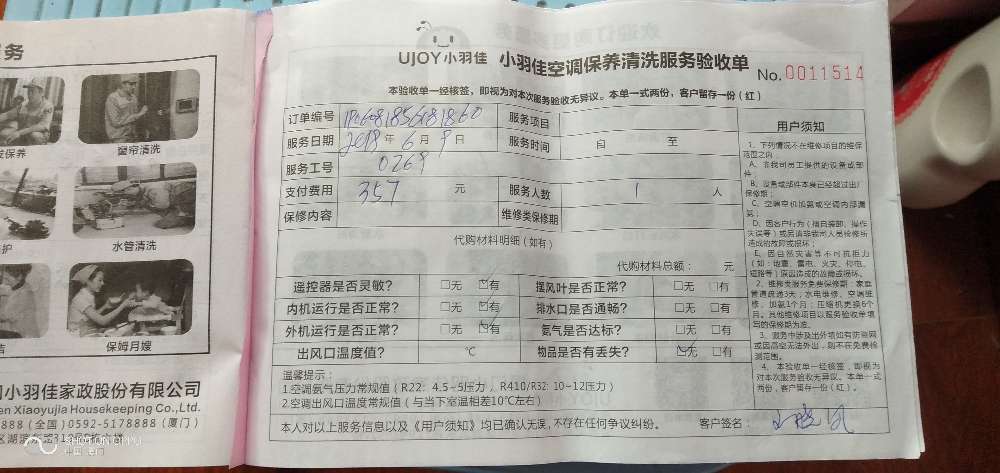 务
保养
窗帘清洗
护
水管清洗
洁
保姆月嫂
小羽佳家政股份有限公司
en Xiaoyujia Housekeeping Co.,Ltd.
8888(全国)0592-5178888(厦门)
SHOT ON OPPO
UJOY小羽佳 小羽佳空调保养清洗服务验收单
No.0011514
本验收单一经核签,即视为对本次服务验收无异议。本单一式两份,客户留存一份(红)
订单编号
服务项目
服务日期 2018年6月9日
服务时间 自 至
服务工号 0269
支付费用 357 元
服务人数 1 人
保修内容
维修类保修期
代购材料明细(如有)
代购材料总额: 元
遥控器是否灵敏? □无 □有
摆风叶是否正常? □无 □有
内机运行是否正常? □无 □有
排水口是否通畅? □无 □有
外机运行是否正常? □无 □有
氨气是否达标? □无 □有
出风口温度值? ℃
物品是否有丢失? □无 □有
温馨提示:
1.空调氨气压力常规值(R22:4.5-5压力,R410/R32:10-12压力)
2.空调出风口温度常规值(与当下室温相差10℃左右)
本人对以上服务信息以及《用户须知》均已确认无误,不存在任何争议纠纷。
客户签名:
用户须知
1、下列情况不在维修项目的维保
范围之内:
A、非我司员工提供的设备或部
件
B、设备或部件本身已经超过出厂
保修期;
C、空调空机加氨或空调内部漏
氨;
D、因客户行为(擅自装卸、操作
失误等)或另请非我司人员检修所
造成的故障或损坏;
E、因自然灾害等不可抗拒力
(如:地震、雷电、火灾、停电、
短路等)原因造成的故障或损坏。
2、维修类服务免费保修期:家庭
管道疏通3天;水电维修、空调维
修、加氨1个月;压缩机更换6个
月。其他维修项目以服务验收单填
写的保修期为准。
3、服务中涉及出外墙如有防盗网
或因高空无法外出,则不在免费检
测范围。
4、本验收单一经核签,即视为
对本次服务验收无异议。本单一式
两份,客户留存一份(红)。